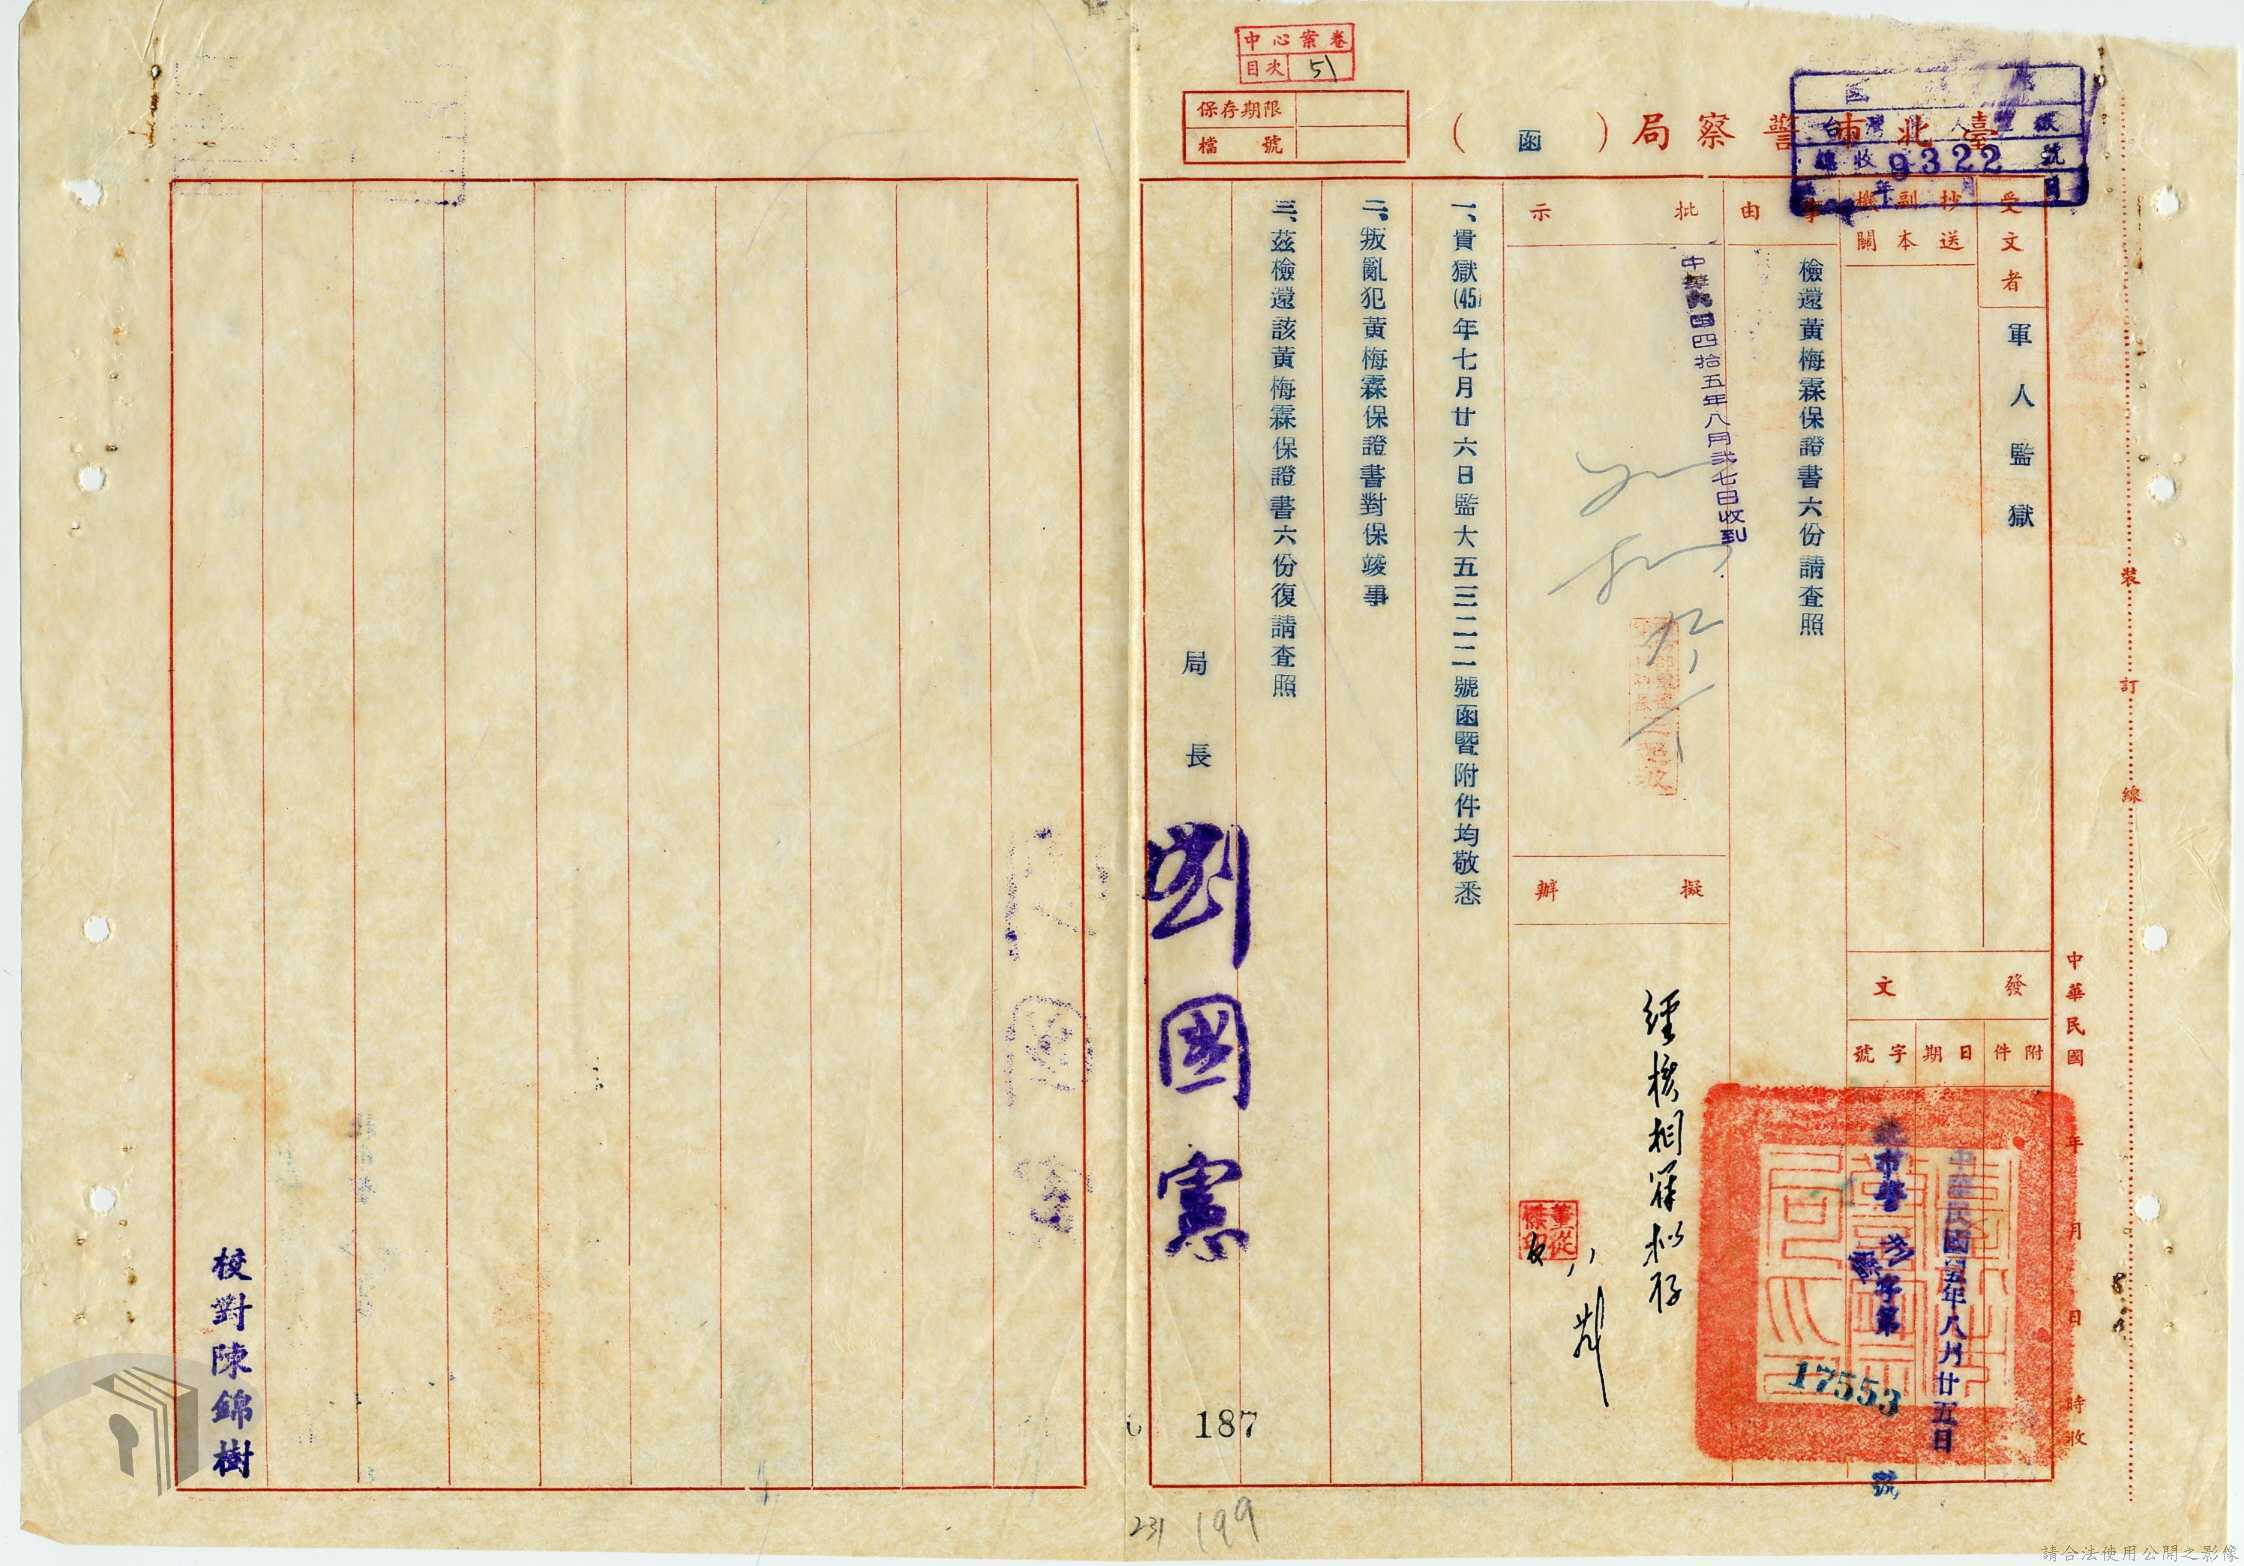 中心案卷
目次 51
保存期限
檔號
臺北市警察局（函）
總收 9322 號
年 月 日
受文者 軍人監獄
抄送副本機關
發文
附件
日期 中華民國四五年八月廿五日
字號 北市警 字第 17553 號
事由 檢還黃梅霖保證書六份請查照
批示
中華民國四拾五年八月弍七日收到
擬辦
經核相符擬存
一、貴獄(45)年七月廿六日監大五三二二號函暨附件均敬悉
二、叛亂犯黃梅霖保證書對保竣事
三、茲檢還該黃梅霖保證書六份復請查照
局長 劉國憲
校對陳錦樹
中華民國 年 月 日 時收
裝訂線
187
231 199
請合法使用公開之影像